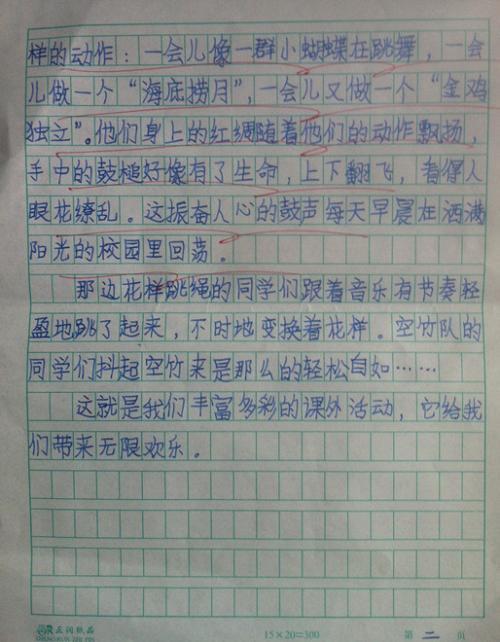 样的动作：一会儿像一群小蝴蝶在跳舞，一会
儿做一个“海底捞月”，一会儿又做一个“金鸡
独立”。他们身上的红绸随着他们的动作飘扬，
手中的鼓槌好像有了生命，上下翻飞，看得人
眼花缭乱。这振奋人心的鼓声每天早晨在洒满
阳光的校园里回荡。
那边花样跳绳的同学们跟着音乐有节奏轻
盈地跳了起来，不时地变换着花样。空竹队的
同学们抖起空竹来是那么的轻松自如……
这就是我们丰富多彩的课外活动，它给我
们带来无限欢乐。
15×20=300
第 二 页